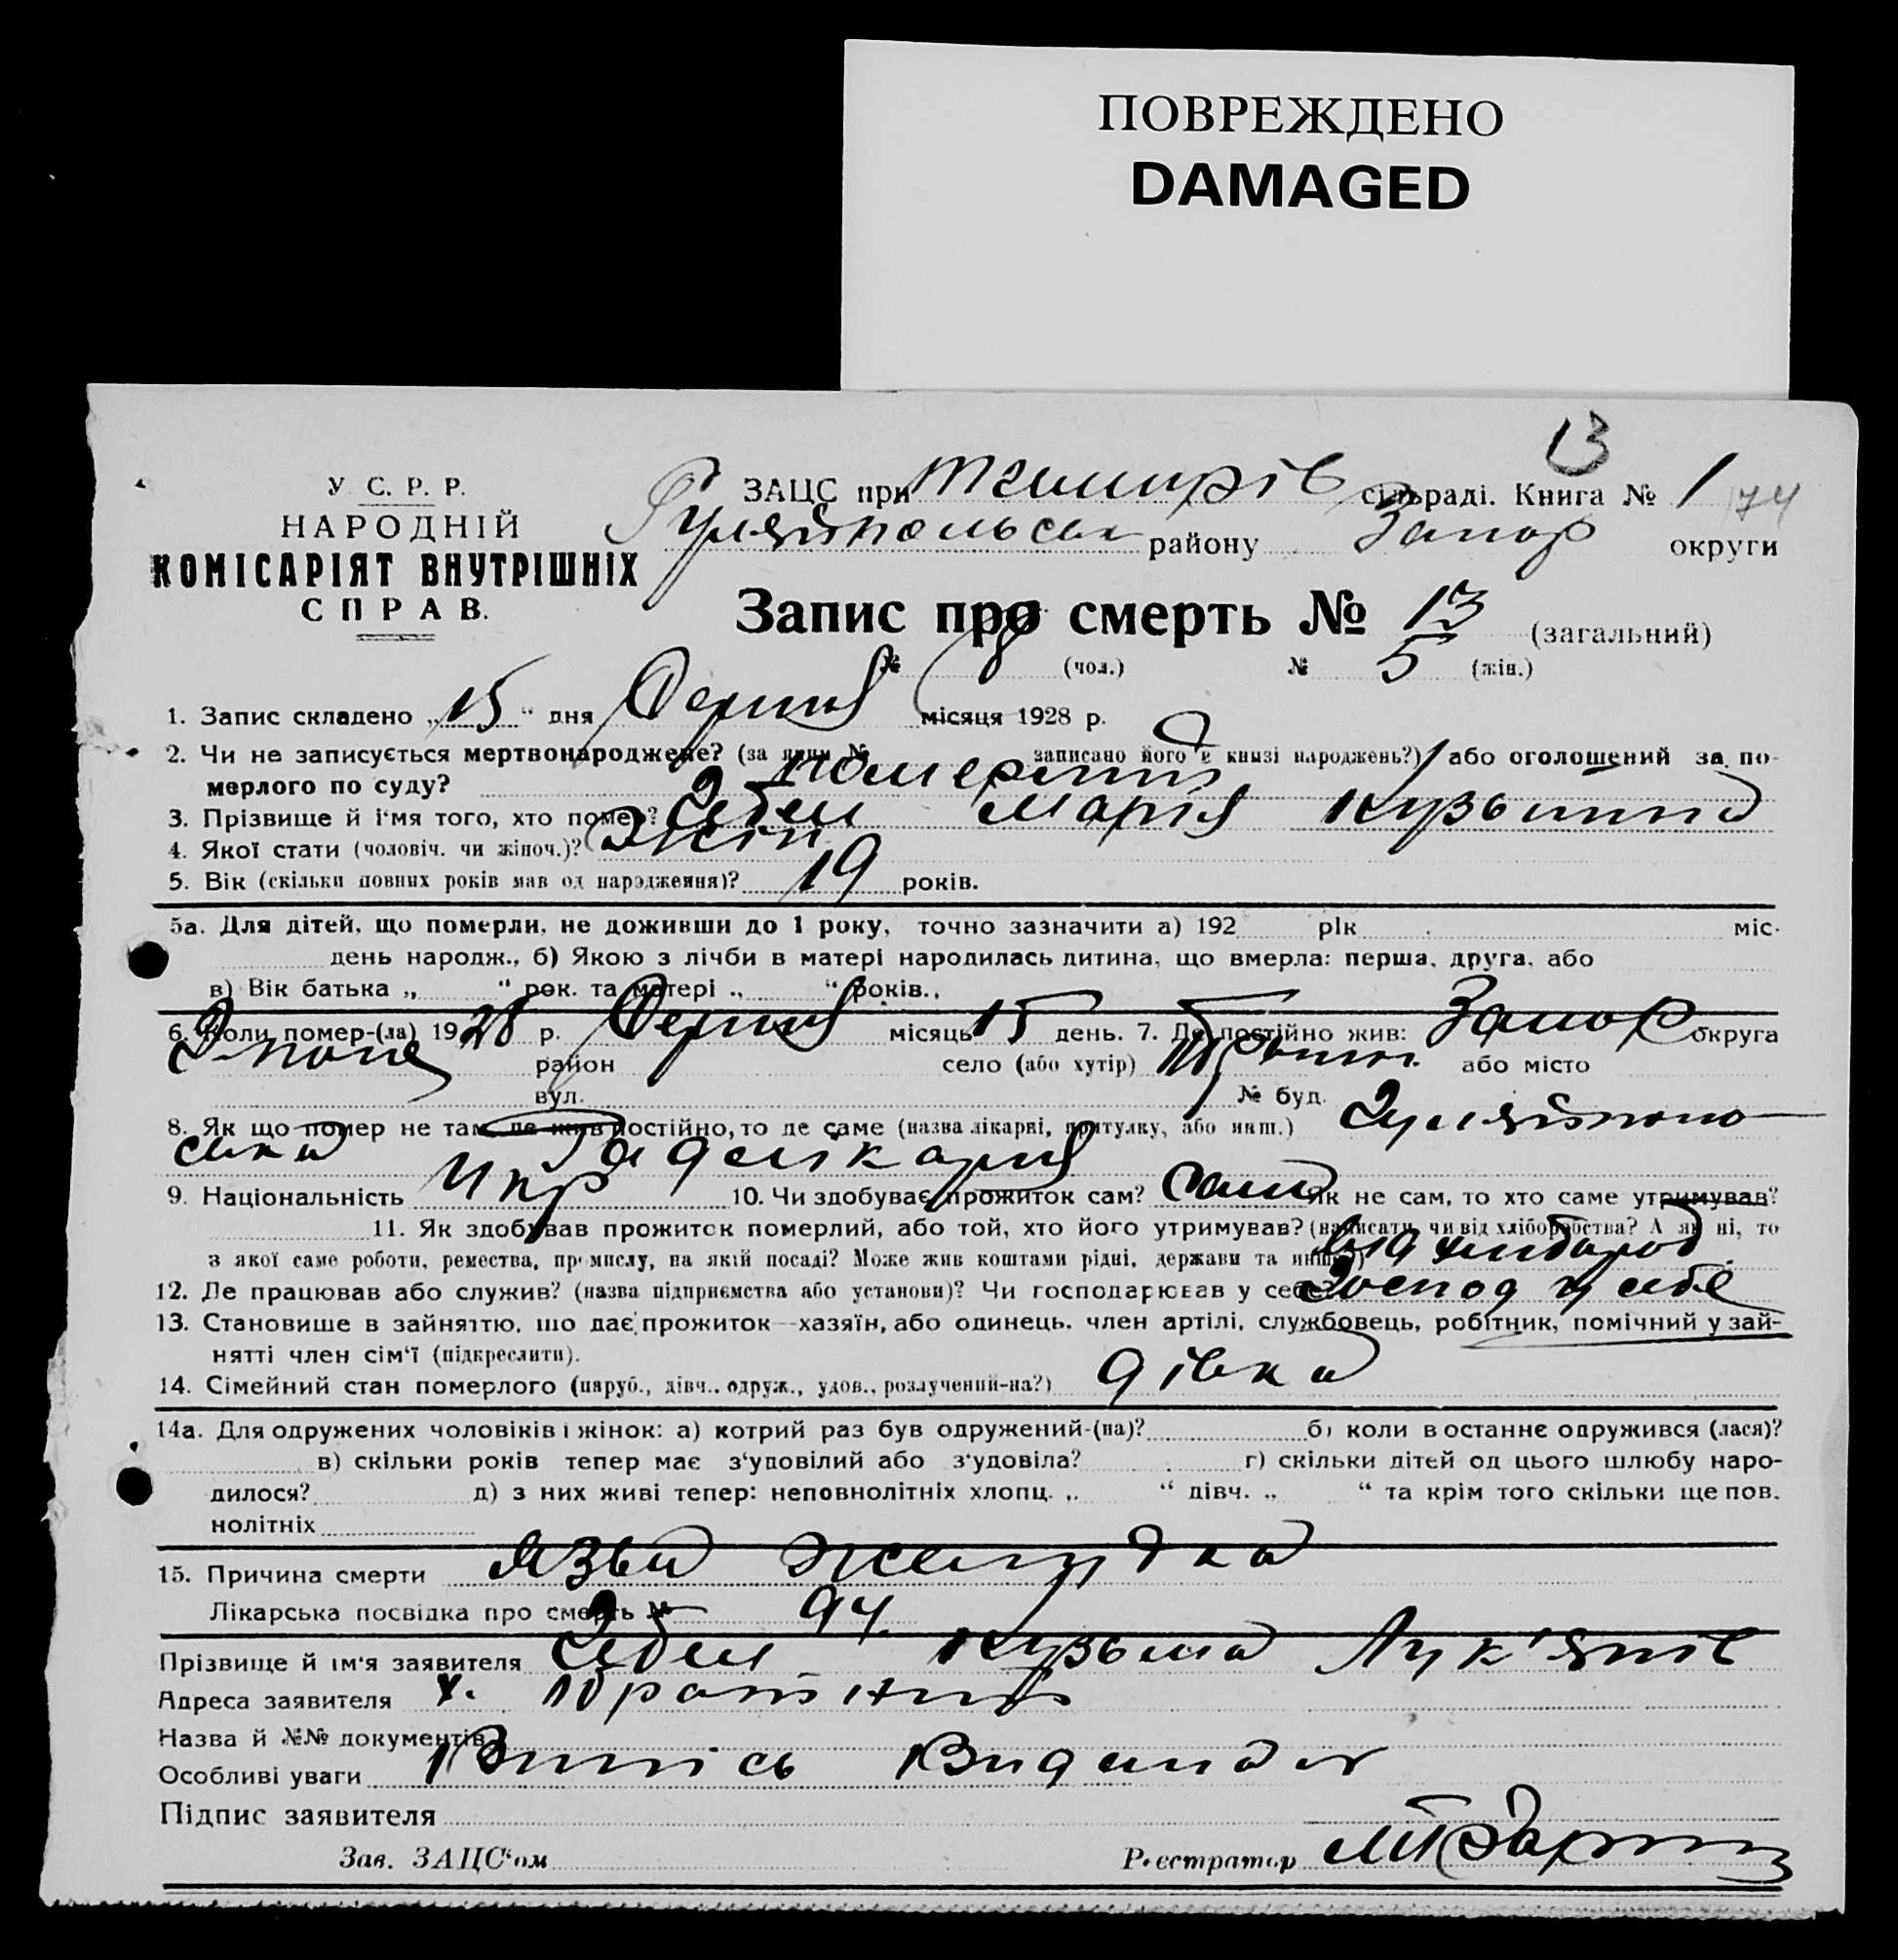 ПОВРЕЖДЕНО
DAMAGED
13
У. С. Р. Р.
НАРОДНІЙ
КОМІСАРІЯТ ВНУТРІШНІХ
СПРАВ.
ЗАЦС при Темирів сільраді. Книга № 1 174
Гуляйпольськ району Запор округи
Запис про смерть № 13 (загальний)
№ 8 (чол.) № 5 (жін.)
1. Запис складено „15“ дня Серпня місяця 1928 р.
2. Чи не записується мертвонароджене? (за яким № записано його в книзі народжень?) або оголошений за по-
мерлого по суду? померши
3. Прізвище й і'мя того, хто помер? Марія Кузьминна
4. Якої стати (чоловіч. чи жіноч.)? Жін
5. Вік (скільки повних років мав од народження)? 19 років.
5а. Для дітей, що померли, не доживши до 1 року, точно зазначити а) 192 рік міс.
день народж., б) Якою з лічби в матері народилась дитина, що вмерла: перша, друга, або
в) Вік батька „ “ рок. та матері „ “ років.
6. Коли помер-(ла) 1928 р. Серпня місяць 15 день. 7. Де постійно жив: Запор округа
Г-поле район село (або хутір) або місто
вул. № буд.
8. Як що помер не там, де жив постійно, то де саме (назва лікарні, притулку, або инш.) Гуляйполь
ська Райлікарня
9. Національність Укр 10. Чи здобував прожиток сам? Сама Як не сам, то хто саме утримував?
11. Як здобував прожиток померлий, або той, хто його утримував? (написати, чи від хліборобства? А як ні, то
з якої саме роботи, ремества, промислу, на якій посаді? Може жив коштами рідні, держави та инше?) від хлібороб
12. Де працював або служив? (назва підприємства або установи)? Чи господарював у себе? Господ у себе
13. Становише в зайняттю, що дає прожиток—хазяїн, або одинець, член артілі, службовець, робітник, помічний у зай-
нятті член сім'ї (підкреслити).
14. Сімейний стан померлого (паруб., дівч., одруж., удов., розлучений-на?) дівка
14а. Для одружених чоловіків і жінок: а) котрий раз був одружений-(на)? б) коли в останнє одружився (лася)?
в) скільки років тепер має з'уповілий або з'удовіла? г) скільки дітей од цього шлюбу наро-
дилося? д) з них живі тепер: неповнолітніх хлопц. „ “ дівч. „ “ та крім того скільки ще пов.
нолітніх
15. Причина смерти Язва желудка
Лікарська посвідка про смерть № 94.
Прізвище й ім'я заявителя Кузьма Лук'янів
Адреса заявителя х.
Назва й №№ документів
Особливі уваги Випись Видана
Підпис заявителя
Зав. ЗАЦС'ом Реєстратор